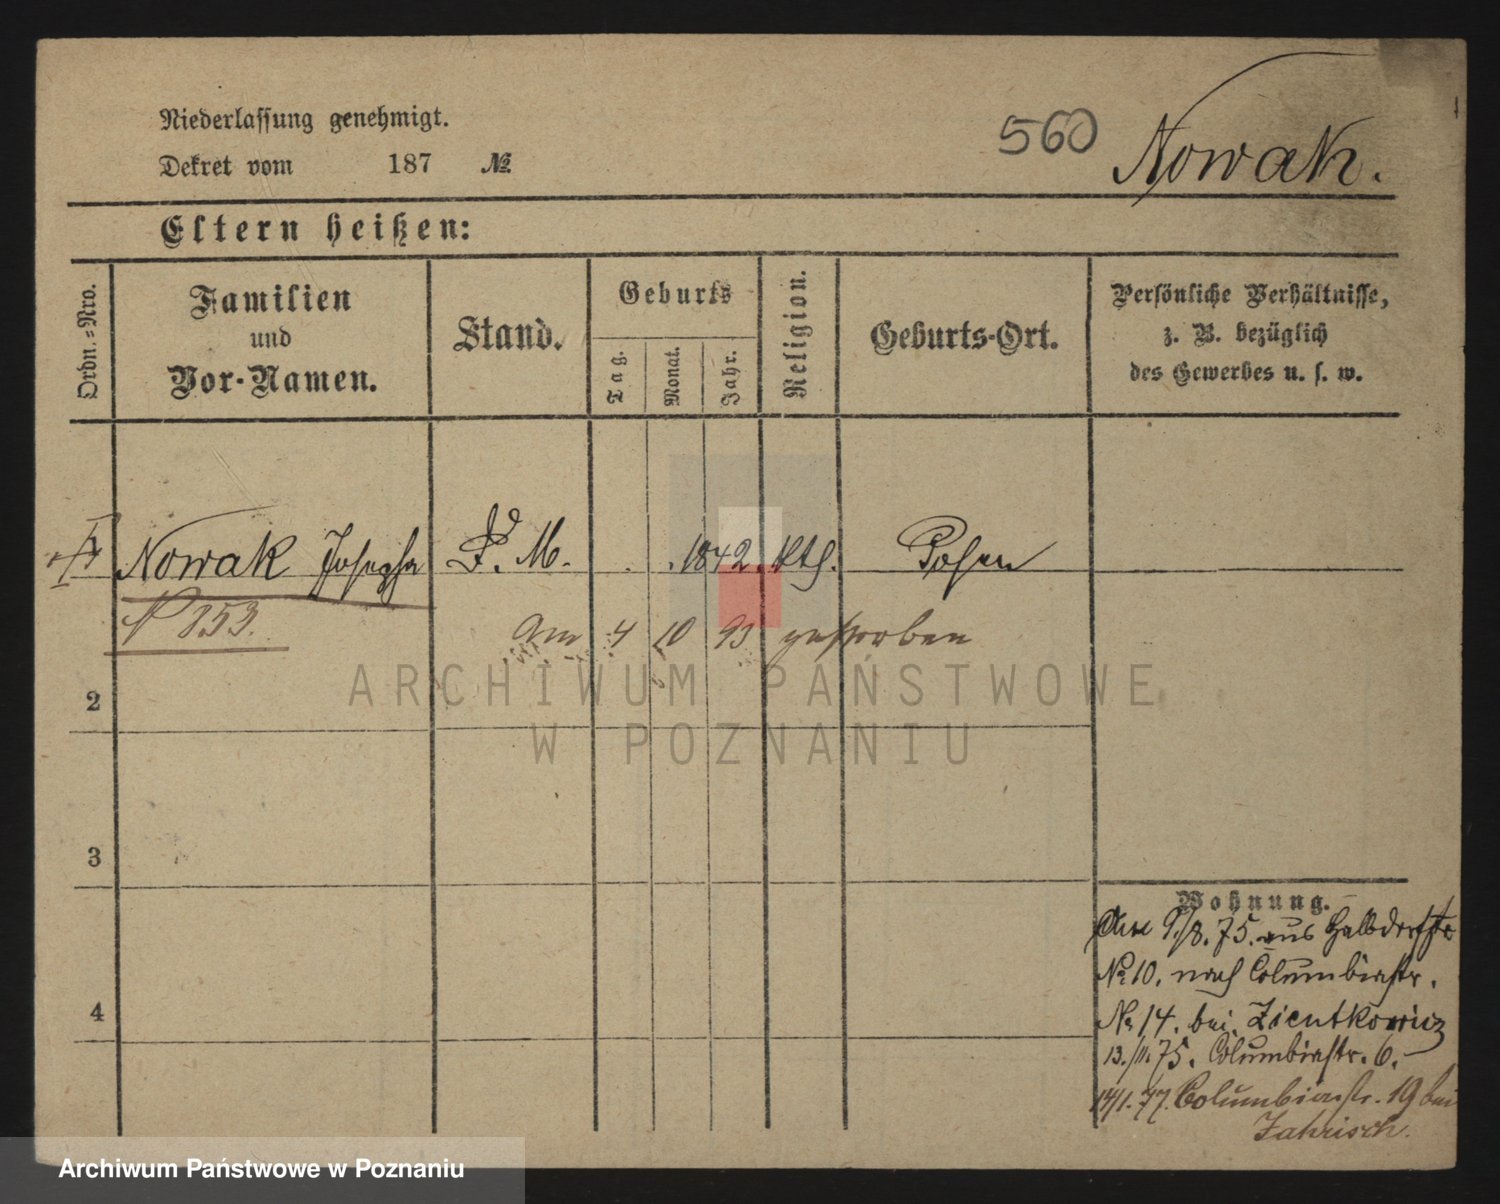 Niederlassung genehmigt.
Dekret vom 187 №
560 Nowak.
Eltern heißen:
Ordn.-Nro.
Familien
und
Vor-Namen.
Stand.
Geburts
Tag.
Monat.
Jahr.
Religion.
Geburts-Ort.
Persönliche Verhältnisse,
z. B. bezüglich
des Gewerbes u. s. w.
Nowak Josepha D. M. 1842. Kth. Posen
853.
Am 4 10 93 gestorben
ARCHIWUM PAŃSTWOWE
W POZNANIU
2
3
4
Wohnung.
9./8. 75. aus Halbdorfstr
No 10. nach Columbiastr.
No 14. bei Zientkowicz
13./11. 75. Columbiastr. 6.
/1. 77. Columbiastr. 19 bei
Jahrisch.
Archiwum Państwowe w Poznaniu